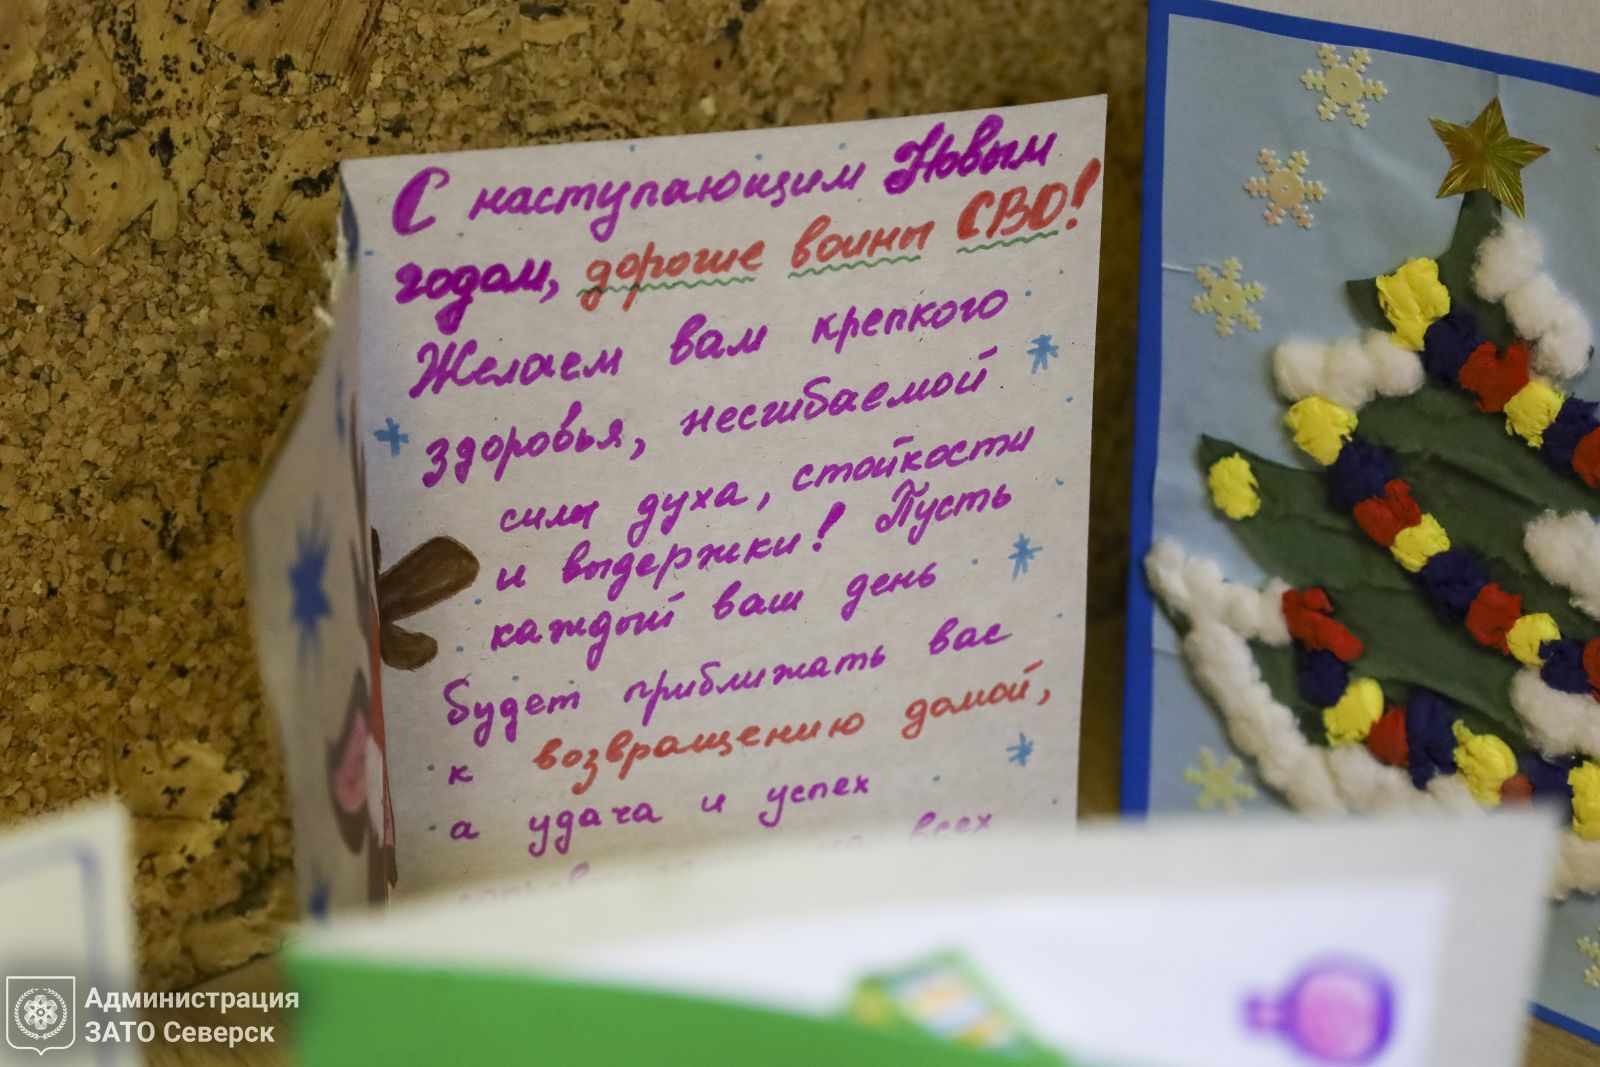 С наступающим Новым
годом, дорогие воины СВО!
Желаем вам крепкого
здоровья, несгибаемой
силы духа, стойкости
и выдержки! Пусть
каждый ваш день
будет приближать вас
к возвращению домой,
а удача и успех
всех
Администрация
ЗАТО Северск